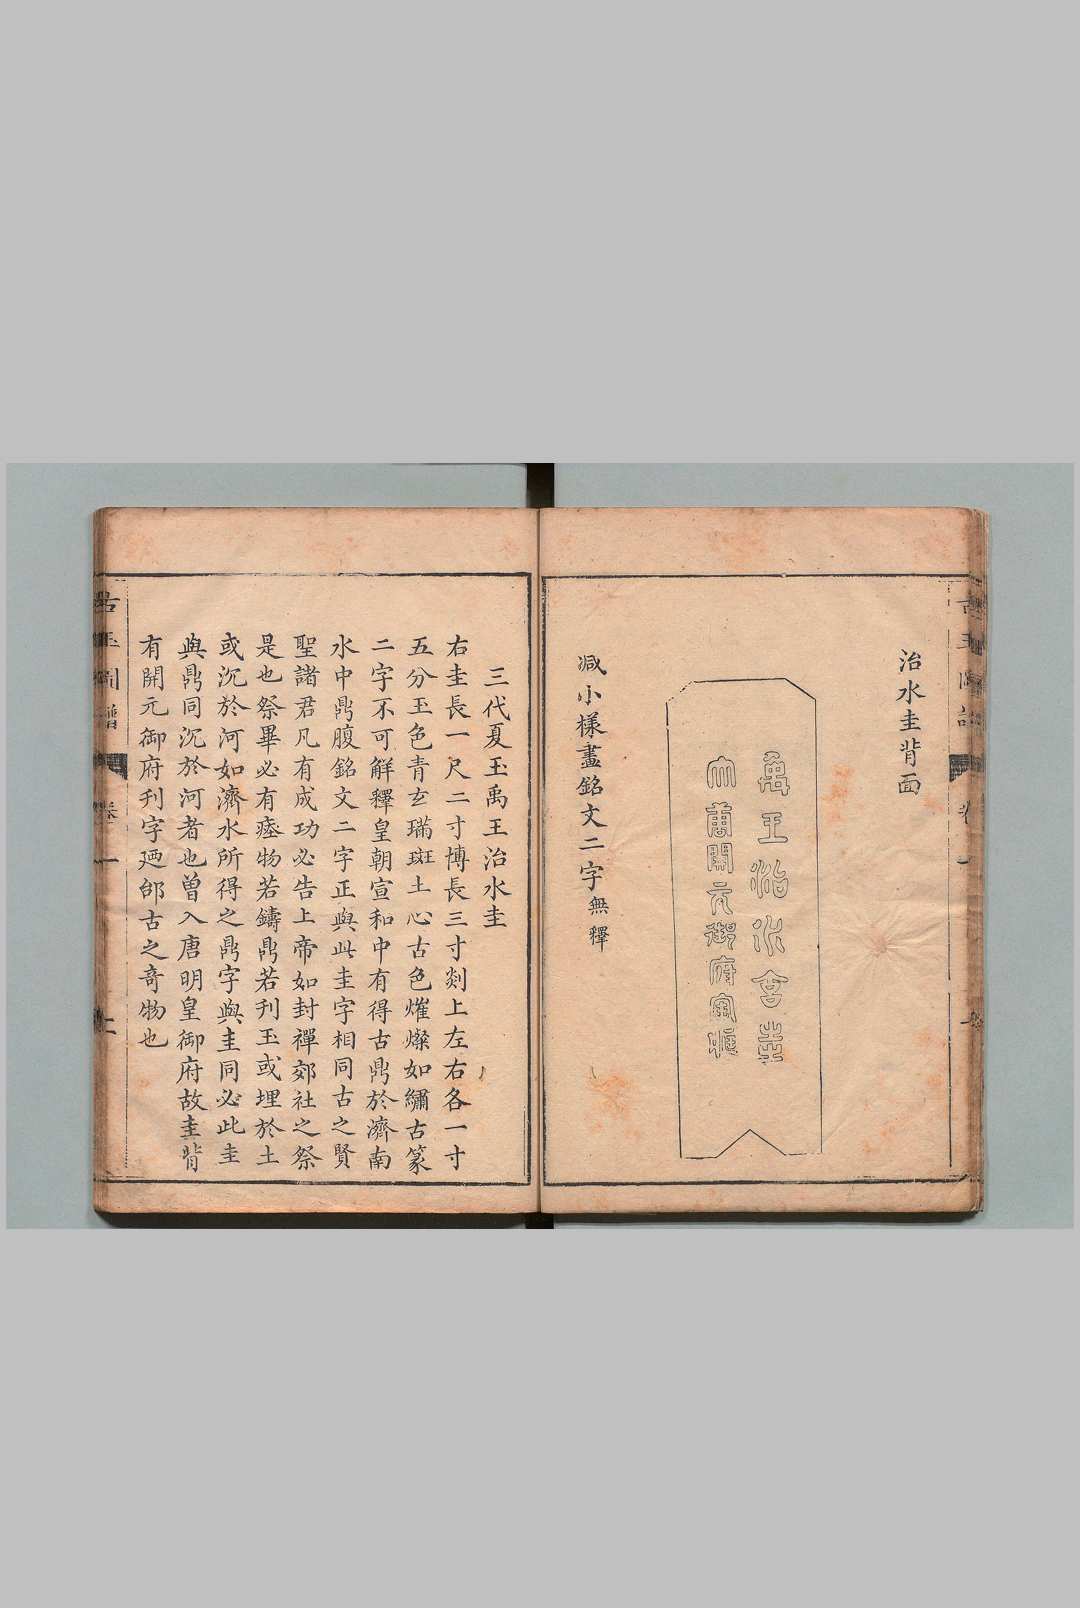 治水圭背面
禹王治水玄圭
大唐開元御府寶藏
減小樣畫銘文二字無釋
三代夏玉禹王治水圭
右圭長一尺二寸博長三寸剡上左右各一寸
五分玉色青玄璊斑土心古色燿燦如繡古篆
二字不可解釋皇朝宣和中有得古鼎於濟南
水中鼎腹銘文二字正與此圭字相同古之賢
聖諸君凡有成功必告上帝如封禪郊社之祭
是也祭畢必有瘞物若鑄鼎若刊玉或埋於土
或沉於河如濟水所得之鼎字與圭同必此圭
與鼎同沉於河者也曾入唐明皇御府故圭背
有開元御府刊字廼邰古之奇物也
古玉圖譜
卷一